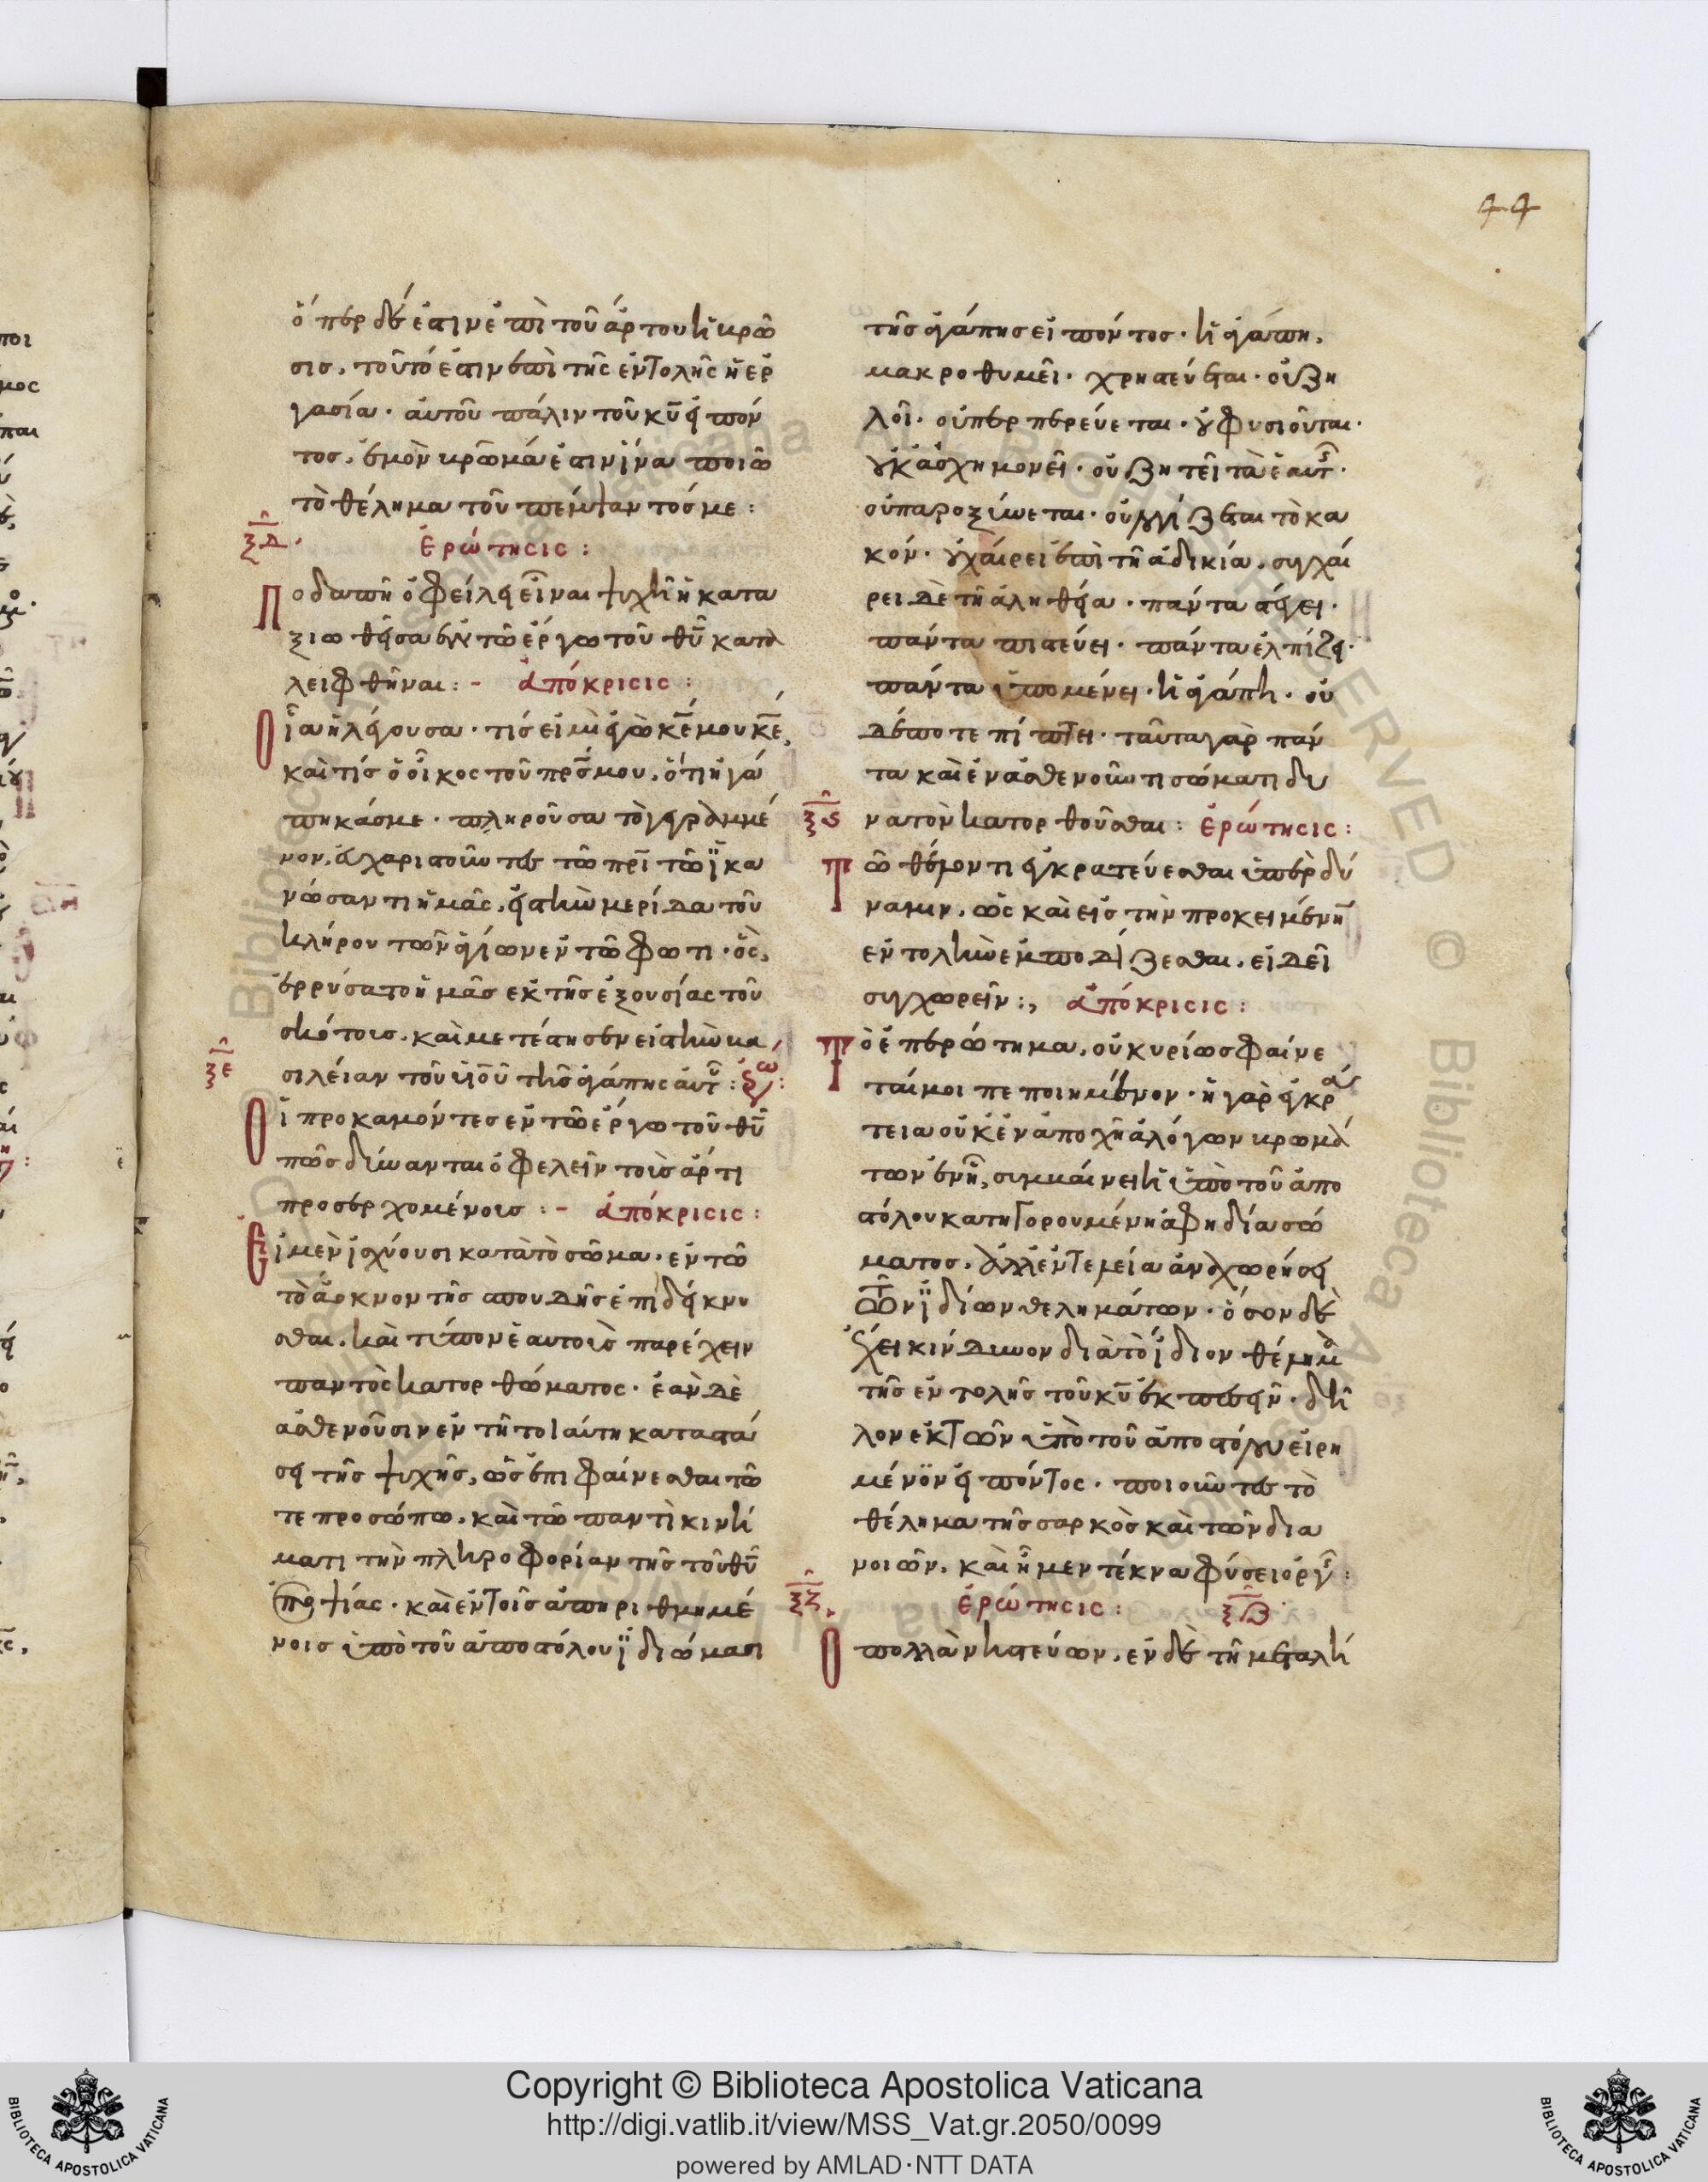 44
ὅπερ δέ ἐστιν ἐπὶ τοῦ ἄρτου ἡ βρῶ
σις, τοῦτό ἐστιν ἐπὶ τῆς ἐντολῆς ἡ ἐρ
γασία· αὐτοῦ πάλιν τοῦ κ̅υ̅ εἰπόν
τος, ἐμὸν βρῶμά ἐστιν ἵνα ποιῶ
τὸ θέλημα τοῦ πέμψαντός με:
ξδ· ἐρώτησις:
Ποδαπὴ ὀφείλει εἶναι ψυχὴ ἡ κατα
ξιωθεῖσα ἐν τῶ ἔργω τοῦ θ̅υ̅ κατα
λειφθῆναι:- ἀπόκρισις:
Οἵα ἡ λέγουσα· τίς εἰμὶ ἐγὼ κ̅ε̅ μου κ̅ε̅,
καὶ τίς ὁ οἶκος τοῦ π̅ρ̅ς̅ μου, ὅτι ἠγά
πηκάς με· πληροῦσα τὸ γεγραμμέ
νον, εὐχαριστοῦντες τῶ π̅ρ̅ι̅ τῶ ἱκα
νώσαντι ἡμᾶς, εἰς τὴν μερίδα τοῦ
κλήρου τῶν ἁγίων ἐν τῶ φωτι· ὃς
ἐρρύσατο ἡμᾶς ἐκ τῆς ἐξουσίας τοῦ
σκότους, καὶ μετέστησεν εἰς τὴν βα
ξε σιλείαν τοῦ υ̅ι̅ο̅ῦ̅ τῆς ἀγάπης αὐτ: ἐρω:
Οἱ προκαμόντες ἐν τῶ ἔργω τοῦ θ̅υ̅
πῶς δύνανται ὀφελεῖν τοὺς ἄρτι
προσερχομένους:- ἀπόκρισις:
Εἰ μὲν ἰσχύουσι κατὰ τὸ σῶμα, ἐν τῶ
τὸ ἄοκνον τῆς σπουδῆς ἐπιδείκνυ
σθαι, καὶ τύπον ἑαυτοὺς παρέχειν
παντὸς κατορθώματος· ἐὰν δὲ
ἀσθενοῦσιν ἐν τῆ τοιαύτη καταστά
σει τῆς ψυχῆς, ὡς ἐπιφαίνεσθαι τῶ
τε προσώπω, καὶ τῶ παντὶ κινή
ματι τὴν πληροφορίαν τῆς τοῦ θ̅υ̅
ἐπόψιας· καὶ ἐν τοῖς ἀπηριθμημέ
νοις ὑπὸ τοῦ ἀποστόλου ἰδιώμασι
τῆς ἀγάπης εἰπόντος· ἡ ἀγάπη,
μακροθυμεῖ· χρηστεύεται· οὐ ζη
λοῖ· οὐ περπερεύεται· οὐ φυσιοῦται·
οὐκ ἀσχημονεῖ· οὐ ζητεῖ τὰ ἑαυτ·
οὐ παροξύνεται· οὐ λογίζεται τὸ κα
κόν· οὐ χαίρει ἐπὶ τῆ ἀδικία, συγχαί
ρει δὲ τῆ ἀληθεία· πάντα στέγει·
πάντα πιστεύει· πάντα ἐλπίζει·
πάντα ὑπομένει· ἡ ἀγάπη, οὐ
δέποτε πίπτει· ταῦτα γὰρ πάν
τα καὶ ἐν ἀσθενοῦντι σώματι δυ
ξς νατὸν κατορθοῦσθαι: ἐρώτησις:
Τῶ θέλοντι ἐγκρατεύεσθαι ὑπὲρ δύ
ναμιν, ὡς καὶ εἰς τὴν προκειμένην
ἐντολὴν ἐμποδίζεσθαι, εἰ δεῖ
συγχωρεῖν:, ἀπόκρισις:
Τὸ ἐπερώτημα, οὐ κυρίως φαίνε
ταί μοι πεποιημένον· ἡ γὰρ ἐγκρά
τεια οὐκ ἐν ἀποχῆ ἀλόγων βρωμά
των ἐστὶν, συμβαίνει ἡ ὑπὸ τοῦ ἀπο
στόλου κατηγορουμένη ἀφηδία σώ
ματος, ἀλλ' ἐν τελεία ἀναχωρήσει
τῶν ἰδίων θελημάτων· ὅσον δὲ
ἔχει κίνδυνον διὰ τὸ ἴδιον θέλημα
τῆς ἐντολῆς τοῦ κ̅υ̅ ἐκπεσεῖν, δῆ
λον ἐκ τῶν ὑπὸ τοῦ ἀποστόλου εἰρη
μένων εἰπόντος· ποιοῦντες τὸ
θέλημα τῆς σαρκὸς καὶ τῶν δια
νοιῶν, καὶ ἦμεν τέκνα φύσει ὀργ:
ξζ ἐρώτησις: ξβ
Ὁ πολλὰ νηστεύων, ἐν δὲ τῆ μεταλή
Copyright © Biblioteca Apostolica Vaticana
http://digi.vatlib.it/view/MSS_Vat.gr.2050/0099
powered by AMLAD·NTT DATA
BIBLIOTECA APOSTOLICA VATICANA
BIBLIOTECA APOSTOLICA VATICANA